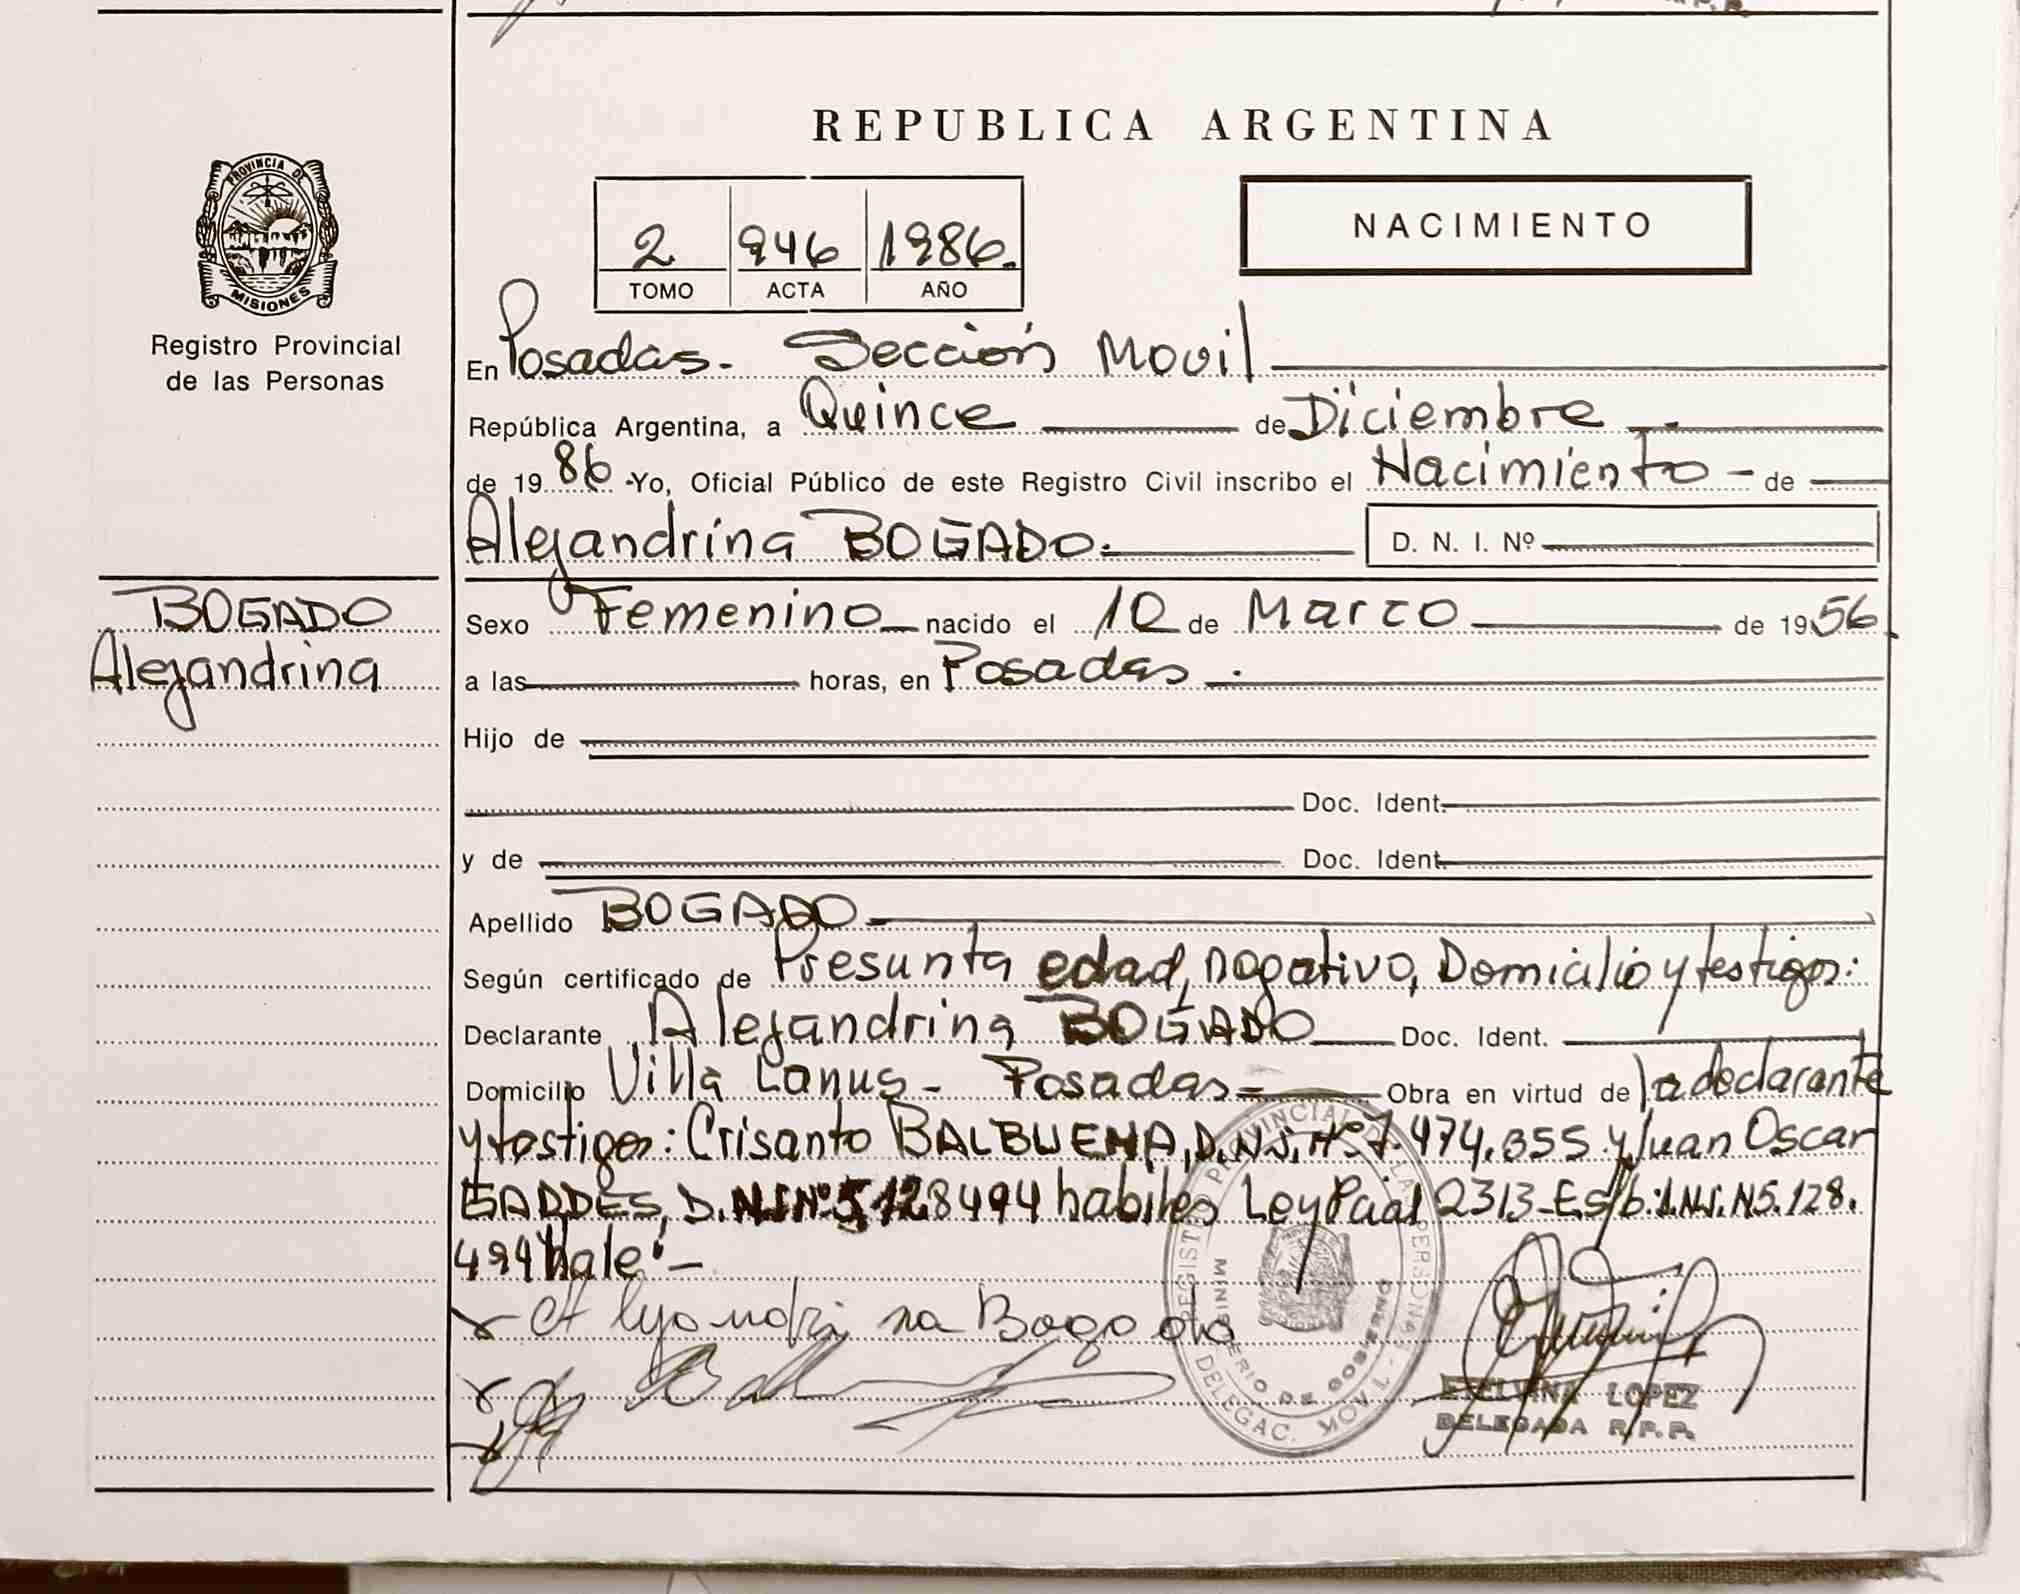 REPUBLICA ARGENTINA
PROVINCIA DE
MISIONES
Registro Provincial
de las Personas
2 946 1986.
TOMO ACTA AÑO
NACIMIENTO
En Posadas. Sección Movil
República Argentina, a Quince de Diciembre
de 19 86 Yo, Oficial Público de este Registro Civil inscribo el Nacimiento - de
Alejandrina BOGADO. D. N. I. Nº
BOGADO
Alejandrina
Sexo Femenino nacido el 10 de Marzo de 1956
a las horas, en Posadas.
Hijo de
Doc. Ident.
y de Doc. Ident.
Apellido BOGADO
Según certificado de Presunta edad, negativo, Domicilio y testigos:
Declarante Alejandrina BOGADO Doc. Ident.
Domicilio Villa Lanus - Posadas Obra en virtud de la declarante
y testigos: Crisanto BALBUENA, D.N.I. Nº 7.474.355 y Juan Oscar
D.N.I Nº 5.128494 habiles Ley Pcial 2313 - Es/b: D.N.I. N5.128.
494 Vale -
Alejandrina Bogado
REGISTRO PROVINCIAL DE LAS PERSONAS
MINISTERIO DE GOBIERNO
DELEGAC. MOVIL
ETELVINA LOPEZ
DELEGADA R.P.P.